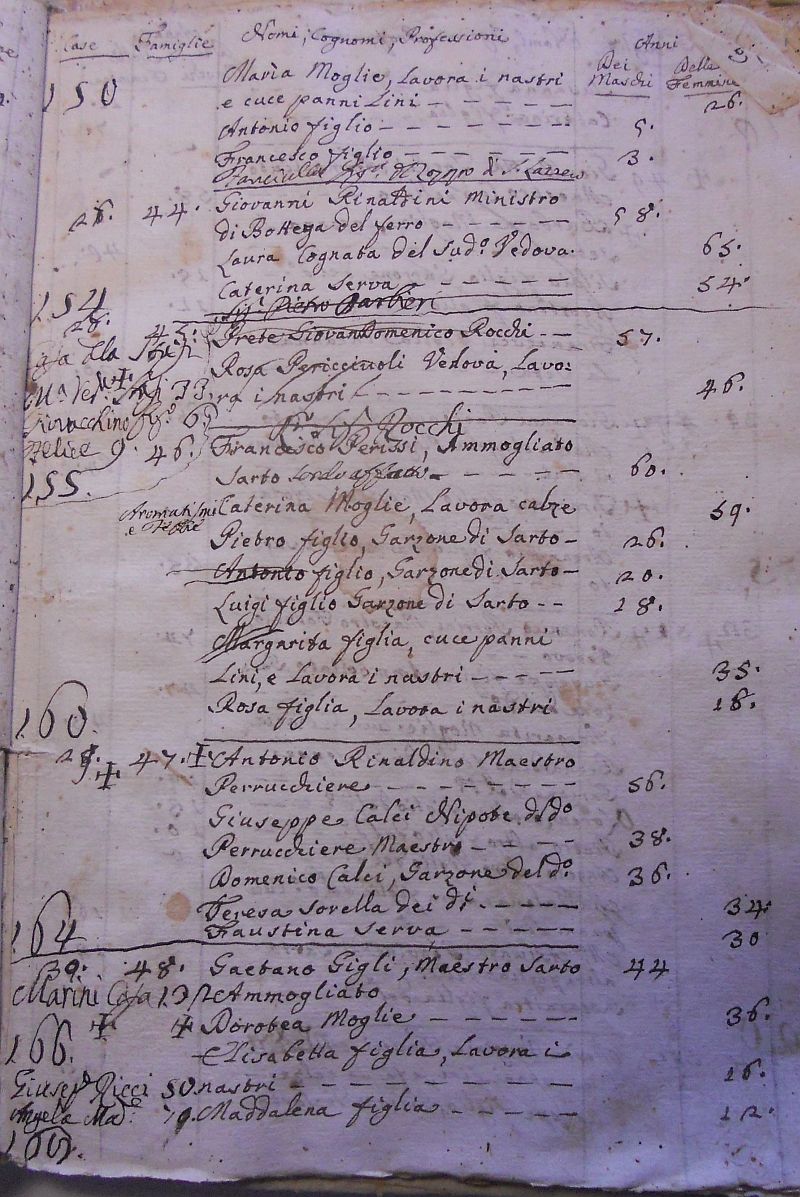 Case Famiglie Nomi, Cognomi, Professioni Anni
Dei Maschi Della Femmine
150 Maria Moglie, Lavora i nastri
e cuce panni Lini - - - - - 26.
Antonio figlio - - - - - 5.
Francesco figlio - - - - - 3.
26. 44. Giovanni Rinaldini Ministro
di Bottega del ferro - - - - - 58.
Laura Cognata del Sud.º Vedova. 65.
Caterina Serva - - - - - 54.
154
Pietro Barbieri
28. 45. Prete Giovan Domenico Rocchi - - 57.
Rosa Pericciuoli Vedova, Lavo:
33 ra i nastri - - - - - 46.
Giovacchino
Rocchi
Felice 9. 46. Francesco Perissi, Ammogliato
Sarto - - - - - 60.
155.
Caterina Moglie, Lavora calze 59.
Pietro figlio, Garzone di Sarto - 26.
Antonio figlio, Garzone di Sarto - 20.
Luigi figlio Garzone di Sarto - - 18.
Margarita figlia, cuce panni
Lini, e Lavora i nastri - - - - 35.
Rosa figlia, Lavora i nastri 18.
160.
47. Antonio Rinaldino Maestro
Perrucchiere - - - - - 56.
Giuseppe Calci Nipote d. dº
Perrucchiere Maestro - - - - 38.
Domenico Calci, Garzone del dº. 36.
Teresa Sorella dei di - - - - - 34.
Faustina Serva - - - - - 30
164
39. 48. Gaetano Gigli, Maestro Sarto 44
Marini Casa 132 Ammogliato
Dorotea Moglie - - - - - 36.
166.
Elisabetta figlia, Lavora i
Ricci 50 nastri - - - - - 16.
Angela 70. Maddalena figlia - - - - - 12.